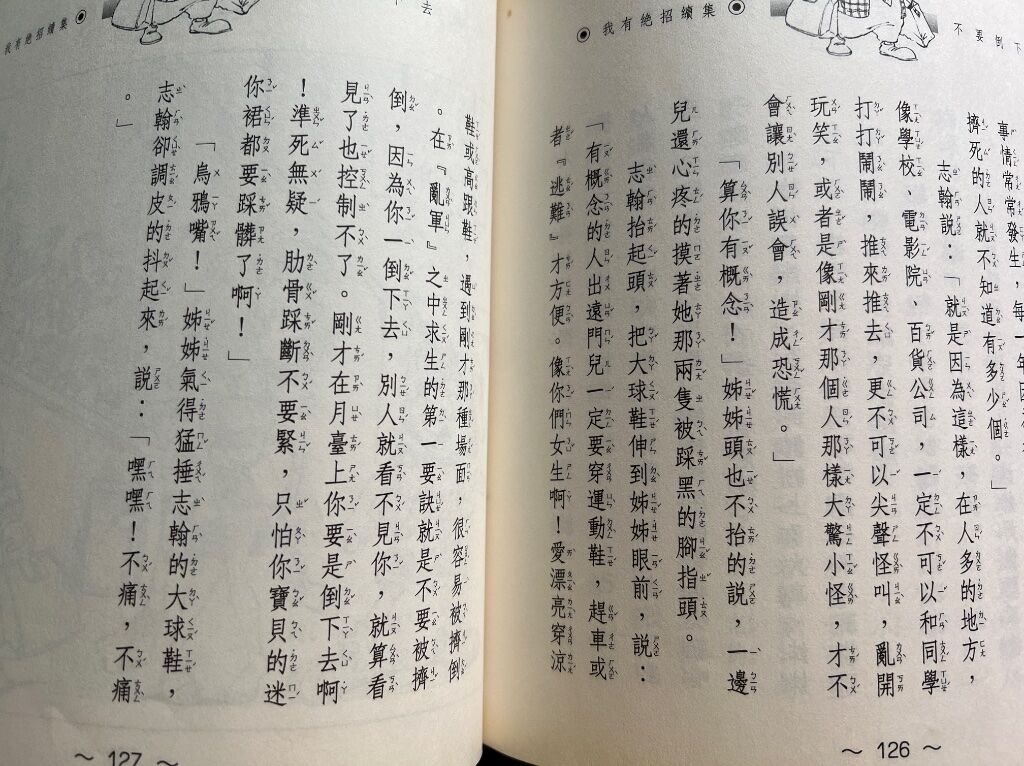 我有絕招續集
不要倒下
事情常常發生，每一年因
擠死的人就不知道有多少個。」
志翰說：「就是因為這樣，在人多的地方，
像學校、電影院、百貨公司，一定不可以和同學
打打鬧鬧，推來推去，更不可以尖聲怪叫，亂開
玩笑，或者是像剛才那個人那樣大驚小怪，才不
會讓別人誤會，造成恐慌。」
「算你有概念！」姊姊頭也不抬的說，一邊
兒還心疼的摸著她那兩隻被踩黑的腳指頭。
志翰抬起頭，把大球鞋伸到姊姊眼前，說：
「有概念的人出遠門兒一定要穿運動鞋，趕車或
者『逃難』才方便。像你們女生啊！愛漂亮穿涼
～ 126 ～
去
我有絕招續集
鞋或高跟鞋，遇到剛才那種場面，很容易被擠倒
。在『亂軍』之中求生的第一要訣就是不要被擠
倒，因為你一倒下去，別人就看不見你，就算看
見了也控制不了。剛才在月臺上你要是倒下去啊
！準死無疑，肋骨踩斷不要緊，只怕你寶貝的迷
你裙都要踩髒了啊！」
「烏鴉嘴！」姊姊氣得猛捶志翰的大球鞋，
志翰卻調皮的抖起來，說：「嘿嘿！不痛，不痛
。」
～ 127 ～